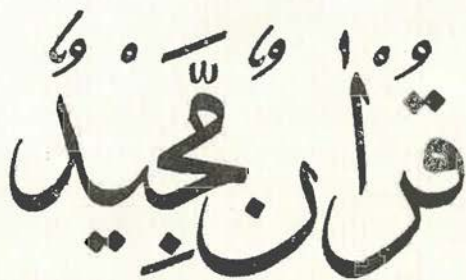 قُرْاٰنٌ مَّجِيْدٌ